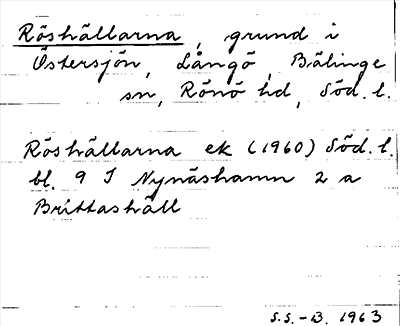 Röshällarna, grund i
Östersjön, Långö, Bälinge
sn, Rönö hd, Söd. l.
Röshällarna ek (1960) Söd. l.
bl. 9 I Nynäshamn 2 a
Brittashäll
S.S. - B. 1963